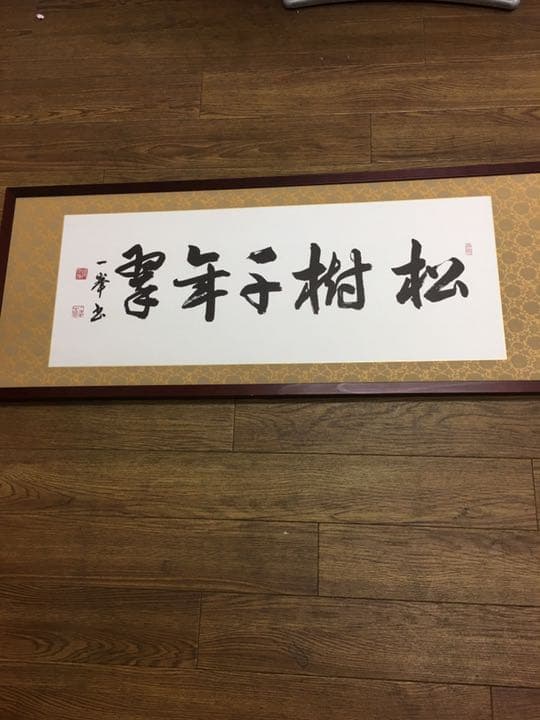 松樹千年翠
一峯书